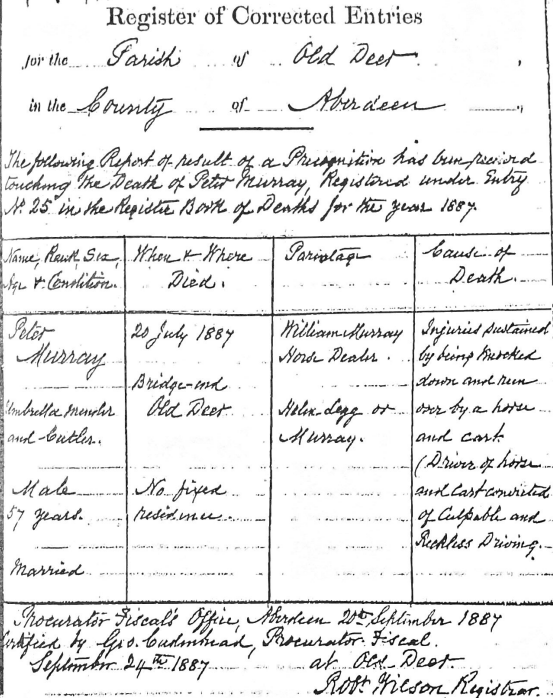 Register of Corrected Entries
for the Parish of Old Deer,
in the County of Aberdeen,
The following Report of result of a Precognition has been received
touching the Death of Peter Murray, Registered under Entry
No. 25 in the Register Book of Deaths for the year 1887.
Name, Rank, Sex, Age & Condition.
When & Where Died.
Parentage
Cause of Death.
Peter
Murray
Umbrella Mender
and Cutler.
Male
57 years.
Married
20 July 1887
Bridge-end
Old Deer
No fixed
residence.
William Murray
Horse Dealer.
Helen Legg or
Murray.
Injuries sustained
by being knocked
down and run
over by a horse
and cart
(Driver of horse
and cart convicted
of Culpable and
Reckless Driving.
Procurator Fiscal's Office, Aberdeen 20th September 1887
Certified by Geo. Cadenhead, Procurator Fiscal.
September 24th 1887 at Old Deer
Robt. Wilson Registrar.